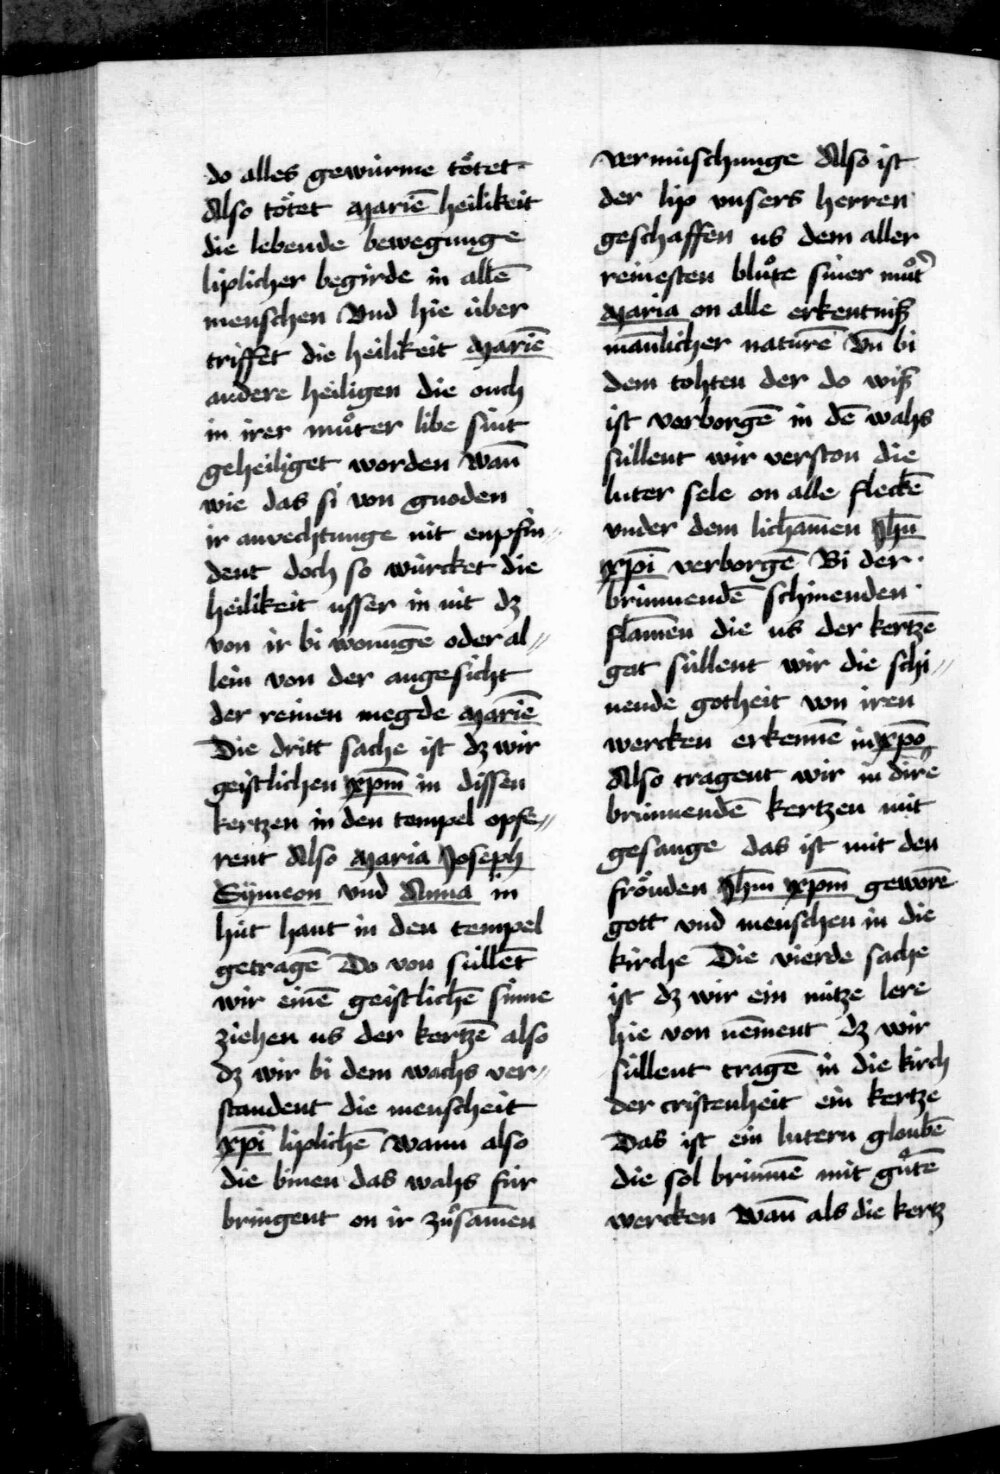 do alles gewürme toͤtet
Also toͤtet Mariē heilikeit
die lebende bewegunge
liplicher begirde in allē
menschen Vnd hie über
triffet die heilikeit Mariē
andere heiligen die ouch
in irer muͦter libe sint
geheiliget worden Wan̄
wie das si von gnoden
ir anvechtunge nit enpfin〃
dent doch so würcket die
heilikeit usser in nit dz
von ir bi wonūgē oder al〃
lein von der angesicht
der reinen megde Mariē
Die dritt sache ist dz wir
geistlichen xp̄m in dissen
kertzen in den tempel opfe〃
rent Also Maria Joseph
Sÿmeon vnd Anna in
hüt hant in den tempel
getragē Do von süllēt
wir einē geistlichē sinne
ziehen us der kertzē also
dz wir bi dem wachs ver〃
standent die menscheit
xp̄i liplichē Wann also
die binen das wahs für
bringent on ir zuͦsam̄en
vermüschunge Also ist
der lip vnsers herren
geschaffen us dem aller
reinesten bluͦte siner muͦt᷑
Maria on alle erkentniß
man̄licher naturē Vn̄ bi
dem tohten der do wiß
ist verborgē in dē wahs
süllent wir verston die
luter sele on alle fleckē
vnder dem licham̄en Jhū
xp̄i verborgē Bi der
brinnendē schinenden
flam̄en die us der kertzē
gat süllent wir die schi〃
nende gotheit von iren
wercken erkennē in xp̄o
Also tragent wir in dirē
brinnendē kertzen mit
gesange das ist mit den
froͤuden Jhm̄ xp̄m geworē
gott vnd menschen in die
kirche Die vierde sache
ist dz wir ein nütze lere
hie von nem̄ent dz wir
süllent tragē in die kirch
der cristenheit ein kertze
Das ist ein lutern gloubē
die sol brinnē mit guͦtē
wercken Wan̄ als die kertz